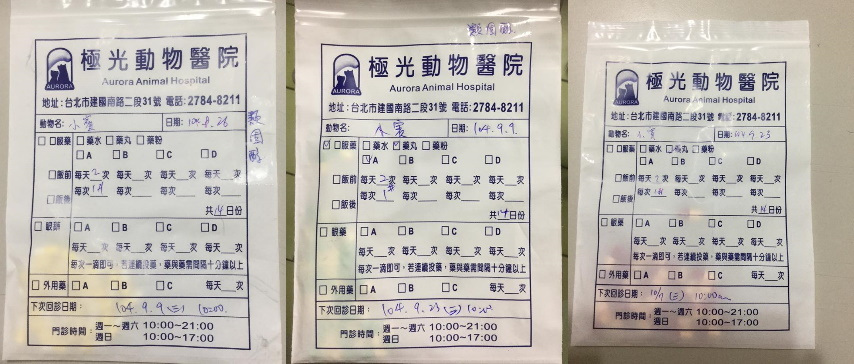 極光動物醫院
Aurora Animal Hospital
AURORA
地址:台北市建國南路二段31號 電話:2784-8211
動物名: 日期:
類固醇
□口服藥 □藥水 □藥丸 □藥粉
□A □B □C □D
□飯前 每天2次 每天 次 每天 次 每天 次
□飯後 每次 每次 每次 每次
共14日份
□眼藥 □A □B □C □D
每天 次 每天 次 每天 次 每天 次
每次一滴即可,若連續投藥,藥與藥需間隔十分鐘以上
□外用藥 □A □B □C 每天 次
下次回診日期: 104.9.9(三) 10:00
門診時間: 週一~週六 10:00~21:00
週日 10:00~17:00
類固醇
極光動物醫院
Aurora Animal Hospital
AURORA
地址:台北市建國南路二段31號 電話:2784-8211
動物名: 日期: 104.9.9
□口服藥 □藥水 □藥丸 □藥粉
□A □B □C □D
□飯前 每天2次 每天 次 每天 次 每天 次
□飯後 每次 每次 每次 每次
共14日份
□眼藥 □A □B □C □D
每天 次 每天 次 每天 次 每天 次
每次一滴即可,若連續投藥,藥與藥需間隔十分鐘以上
□外用藥 □A □B □C 每天 次
下次回診日期: 104.9.23(三) 10:00
門診時間: 週一~週六 10:00~21:00
週日 10:00~17:00
極光動物醫院
Aurora Animal Hospital
AURORA
地址:台北市建國南路二段31號 電話:2784-8211
動物名: 日期: 104.9.23
□口服藥 □藥水 □藥丸 □藥粉
□A □B □C □D
□飯前 每天 次 每天 次 每天 次 每天 次
□飯後 每次 每次 每次 每次
共14日份
□眼藥 □A □B □C □D
每天 次 每天 次 每天 次 每天 次
每次一滴即可,若連續投藥,藥與藥需間隔十分鐘以上
□外用藥 □A □B □C 每天 次
下次回診日期: 10/7 (三) 10:00am
門診時間: 週一~週六 10:00~21:00
週日 10:00~17:00